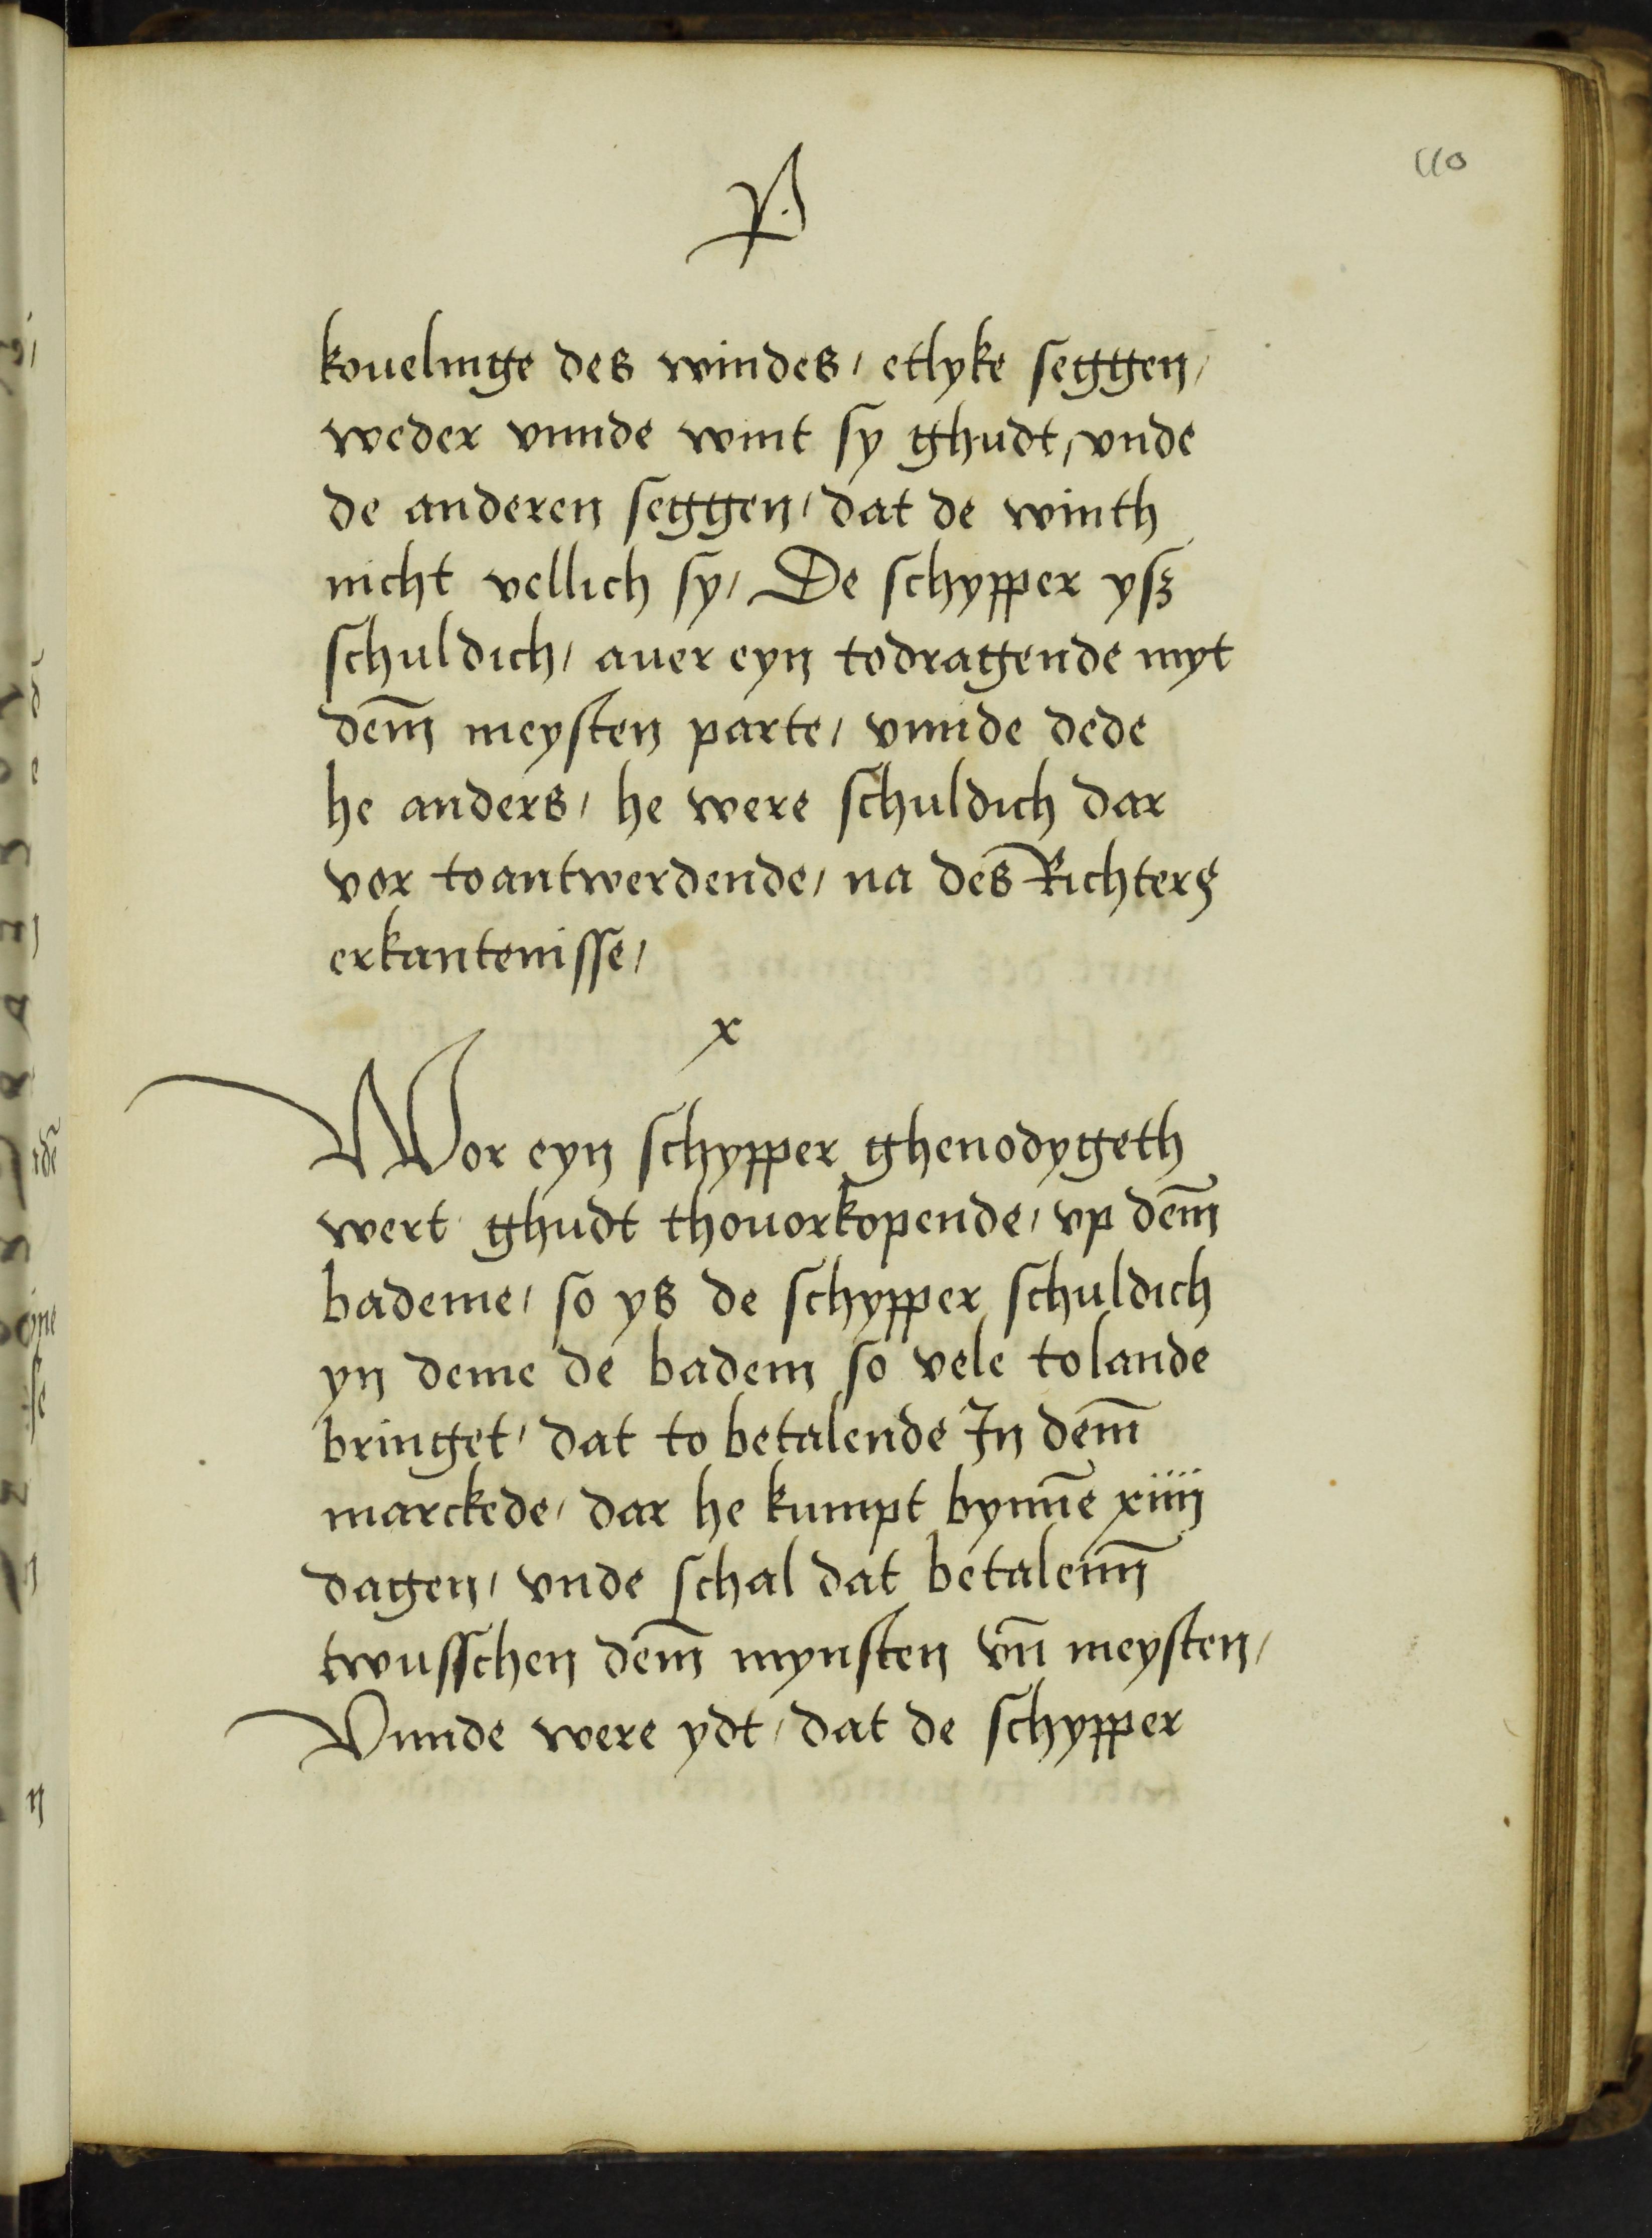 110
kouelinge des windes / etlyke seggen /
weder vnnde wint sy ghudt / vnde
de anderen seggen / dat de winth
nicht vellich sy / De schypper ysz
schuldich / auer eyn todragende myt
dem̄ meysten parte / vnnde dede
he anders / he were schuldich dar
vor toantwerdende / na des Richters
erkantenisse /
x
Wor eyn schypper ghenodygeth
wert ghudt thouorkopende / vp dem̄
bademe / so ys de schypper schuldich
yn deme de badem so vele tolande
bringet / dat to betalende In dem̄
marckede / dar he kumpt bynnē xiiii
dagen / vnde schal dat betalenn̄
twusschen dem̄ mynsten vn̄ meysten /
Vnnde were ydt / dat de schypper